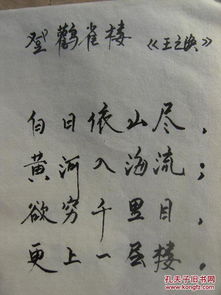 登鹳雀楼 《王之涣》
白日依山尽，
黄河入海流；
欲穷千里目，
更上一层楼。
孔夫子旧书网